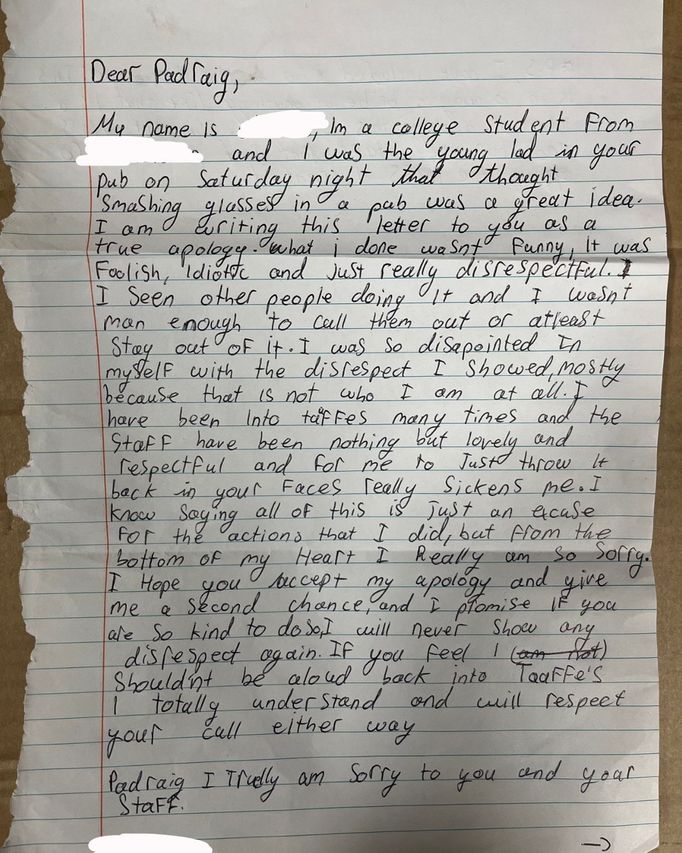 Dear Padraig,
My name is , Im a college student from
and I was the young lad in your
pub on Saturday night that thought
Smashing glasses in a pub was a great idea.
I am writing this letter to you as a
true apology. what i done wasnt funny, It was
Foolish, Idiotic and Just really disrespectful.
I Seen other people doing It and I wasnt
man enough to call them out or atleast
Stay out of it. I was so disapointed In
myself with the disrespect I showed, mostly
because that is not who I am at all. I
have been Into taffes many times and the
Staff have been nothing but lovely and
respectful and for me to Just throw It
back in your Faces really Sickens me. I
know Saying all of this is just an excuse
For the actions that I did, but from the
bottom of my Heart I Really am so Sorry.
I Hope you accept my apology and give
me a second chance, and I promise if you
are so kind to do so, I will never show any
disrespect again. If you feel I (am not)
Shouldnt be aloud back into Taaffe's
I totally understand and will respect
your call either way
Padraig I Trully am Sorry to you and your
Staff.
→